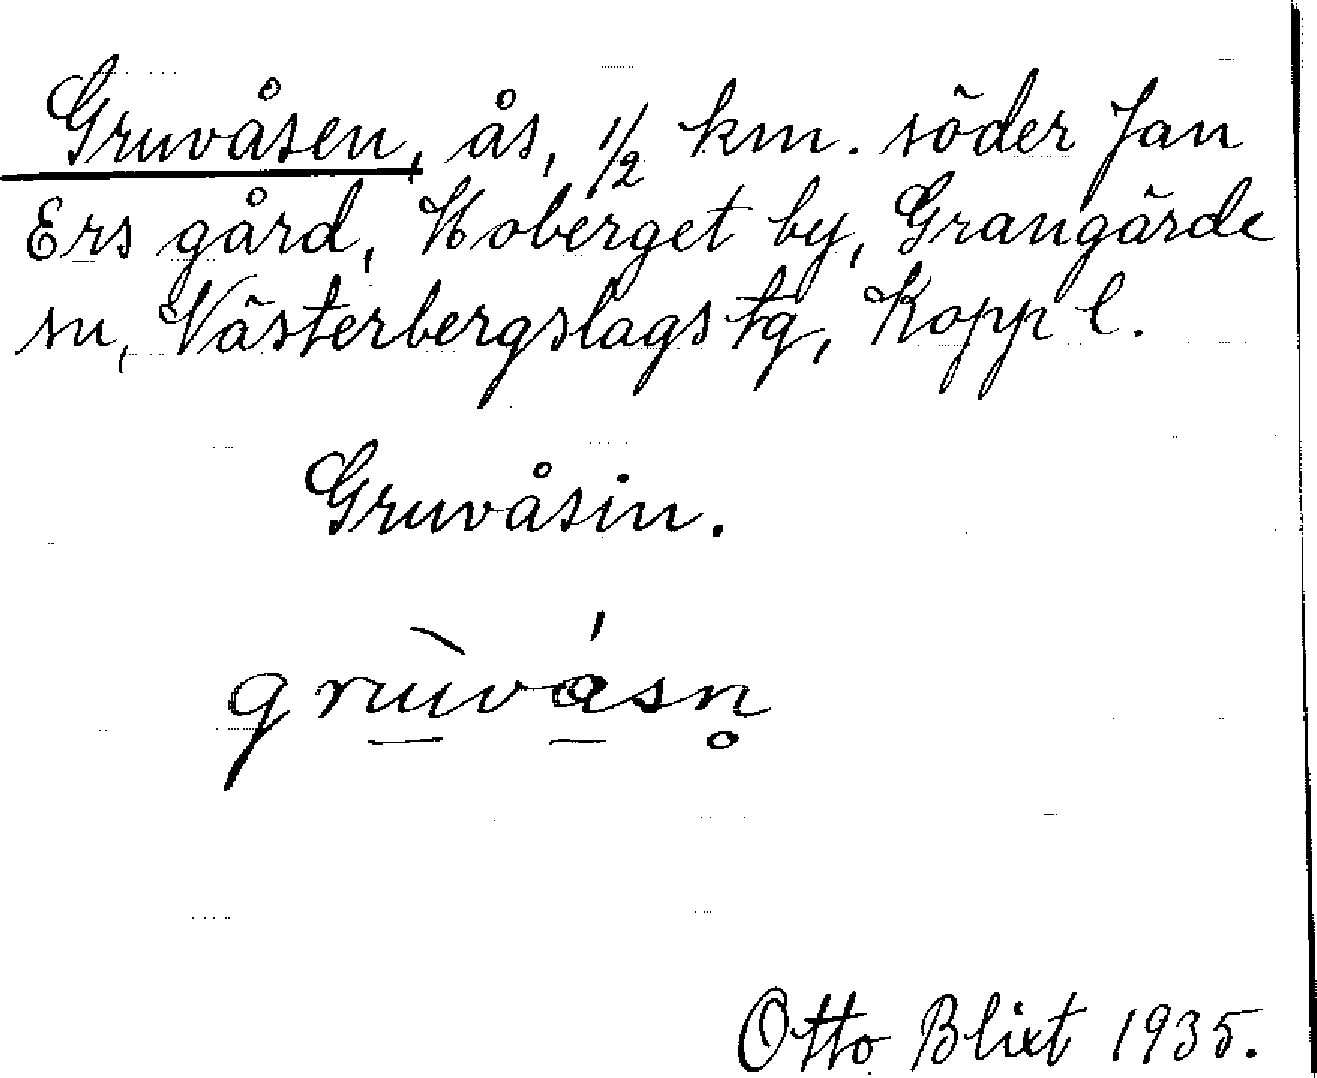 Gruvåsen, ås, 1/2 km. söder Jan
Ers gård, Hoberget by, Grangärde
sn, Västerbergslags tg, Kopp l.
Gruvåsin.
Otto Blixt 1935.